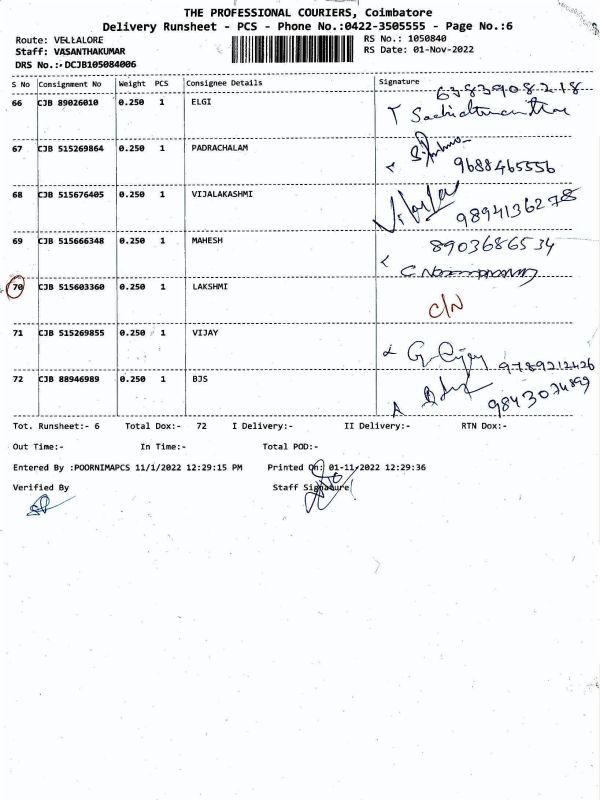 THE PROFESSIONAL COURIERS, Coimbatore
Delivery Runsheet - PCS - Phone No.:0422-3505555 - Page No.:6
Route: VELLALORE
RS No.: 1050840
Staff: VASANTHAKUMAR
RS Date: 01-Nov-2022
DRS No.:-DCJB105084006
S No Consignment No Weight PCS Consignee Details Signature
6383908218
66 CJB 89026010 0.250 1 ELGI
67 CJB 515269864 0.250 1 PADRACHALAM
9688465556
68 CJB 515676405 0.250 1 VIJALAKASHMI
9894136278
69 CJB 515666348 0.250 1 MAHESH 8903686534
70 CJB 515603360 0.250 1 LAKSHMI
C/N
71 CJB 515269855 0.250 1 VIJAY
G. Vijay 9789212426
72 CJB 88946989 0.250 1 BJS
9843074899
Tot. Runsheet:- 6 Total Dox:- 72 I Delivery:- II Delivery:- RTN Dox:-
Out Time:- In Time:- Total POD:-
Entered By :POORNIMAPCS 11/1/2022 12:29:15 PM Printed On: 01-11-2022 12:29:36
Verified By Staff Signature